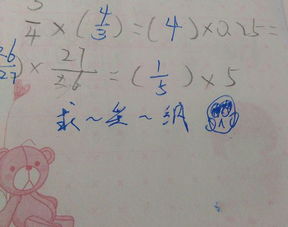 3/4 × ( 4/3 ) = ( 4 ) × 0.25 =
26/27 ) × 27/26 = ( 1/5 ) × 5
求~生~纲